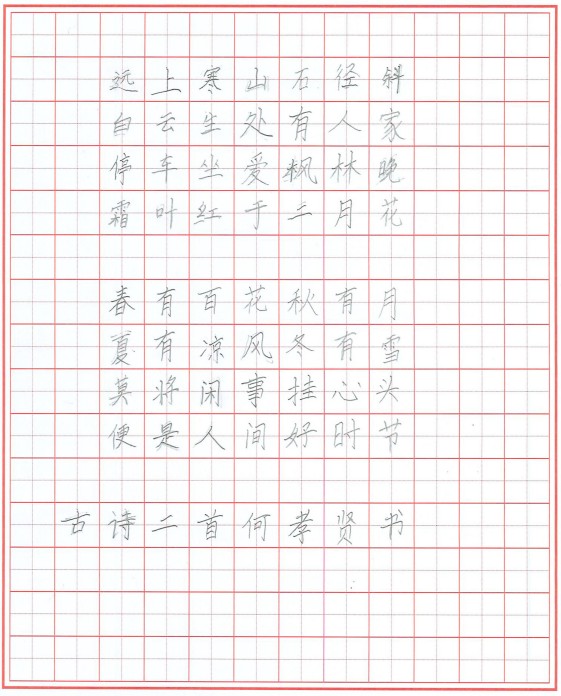 远上寒山石径斜
白云生处有人家
停车坐爱枫林晚
霜叶红于二月花
春有百花秋有月
夏有凉风冬有雪
莫将闲事挂心头
便是人间好时节
古诗二首何孝贤书